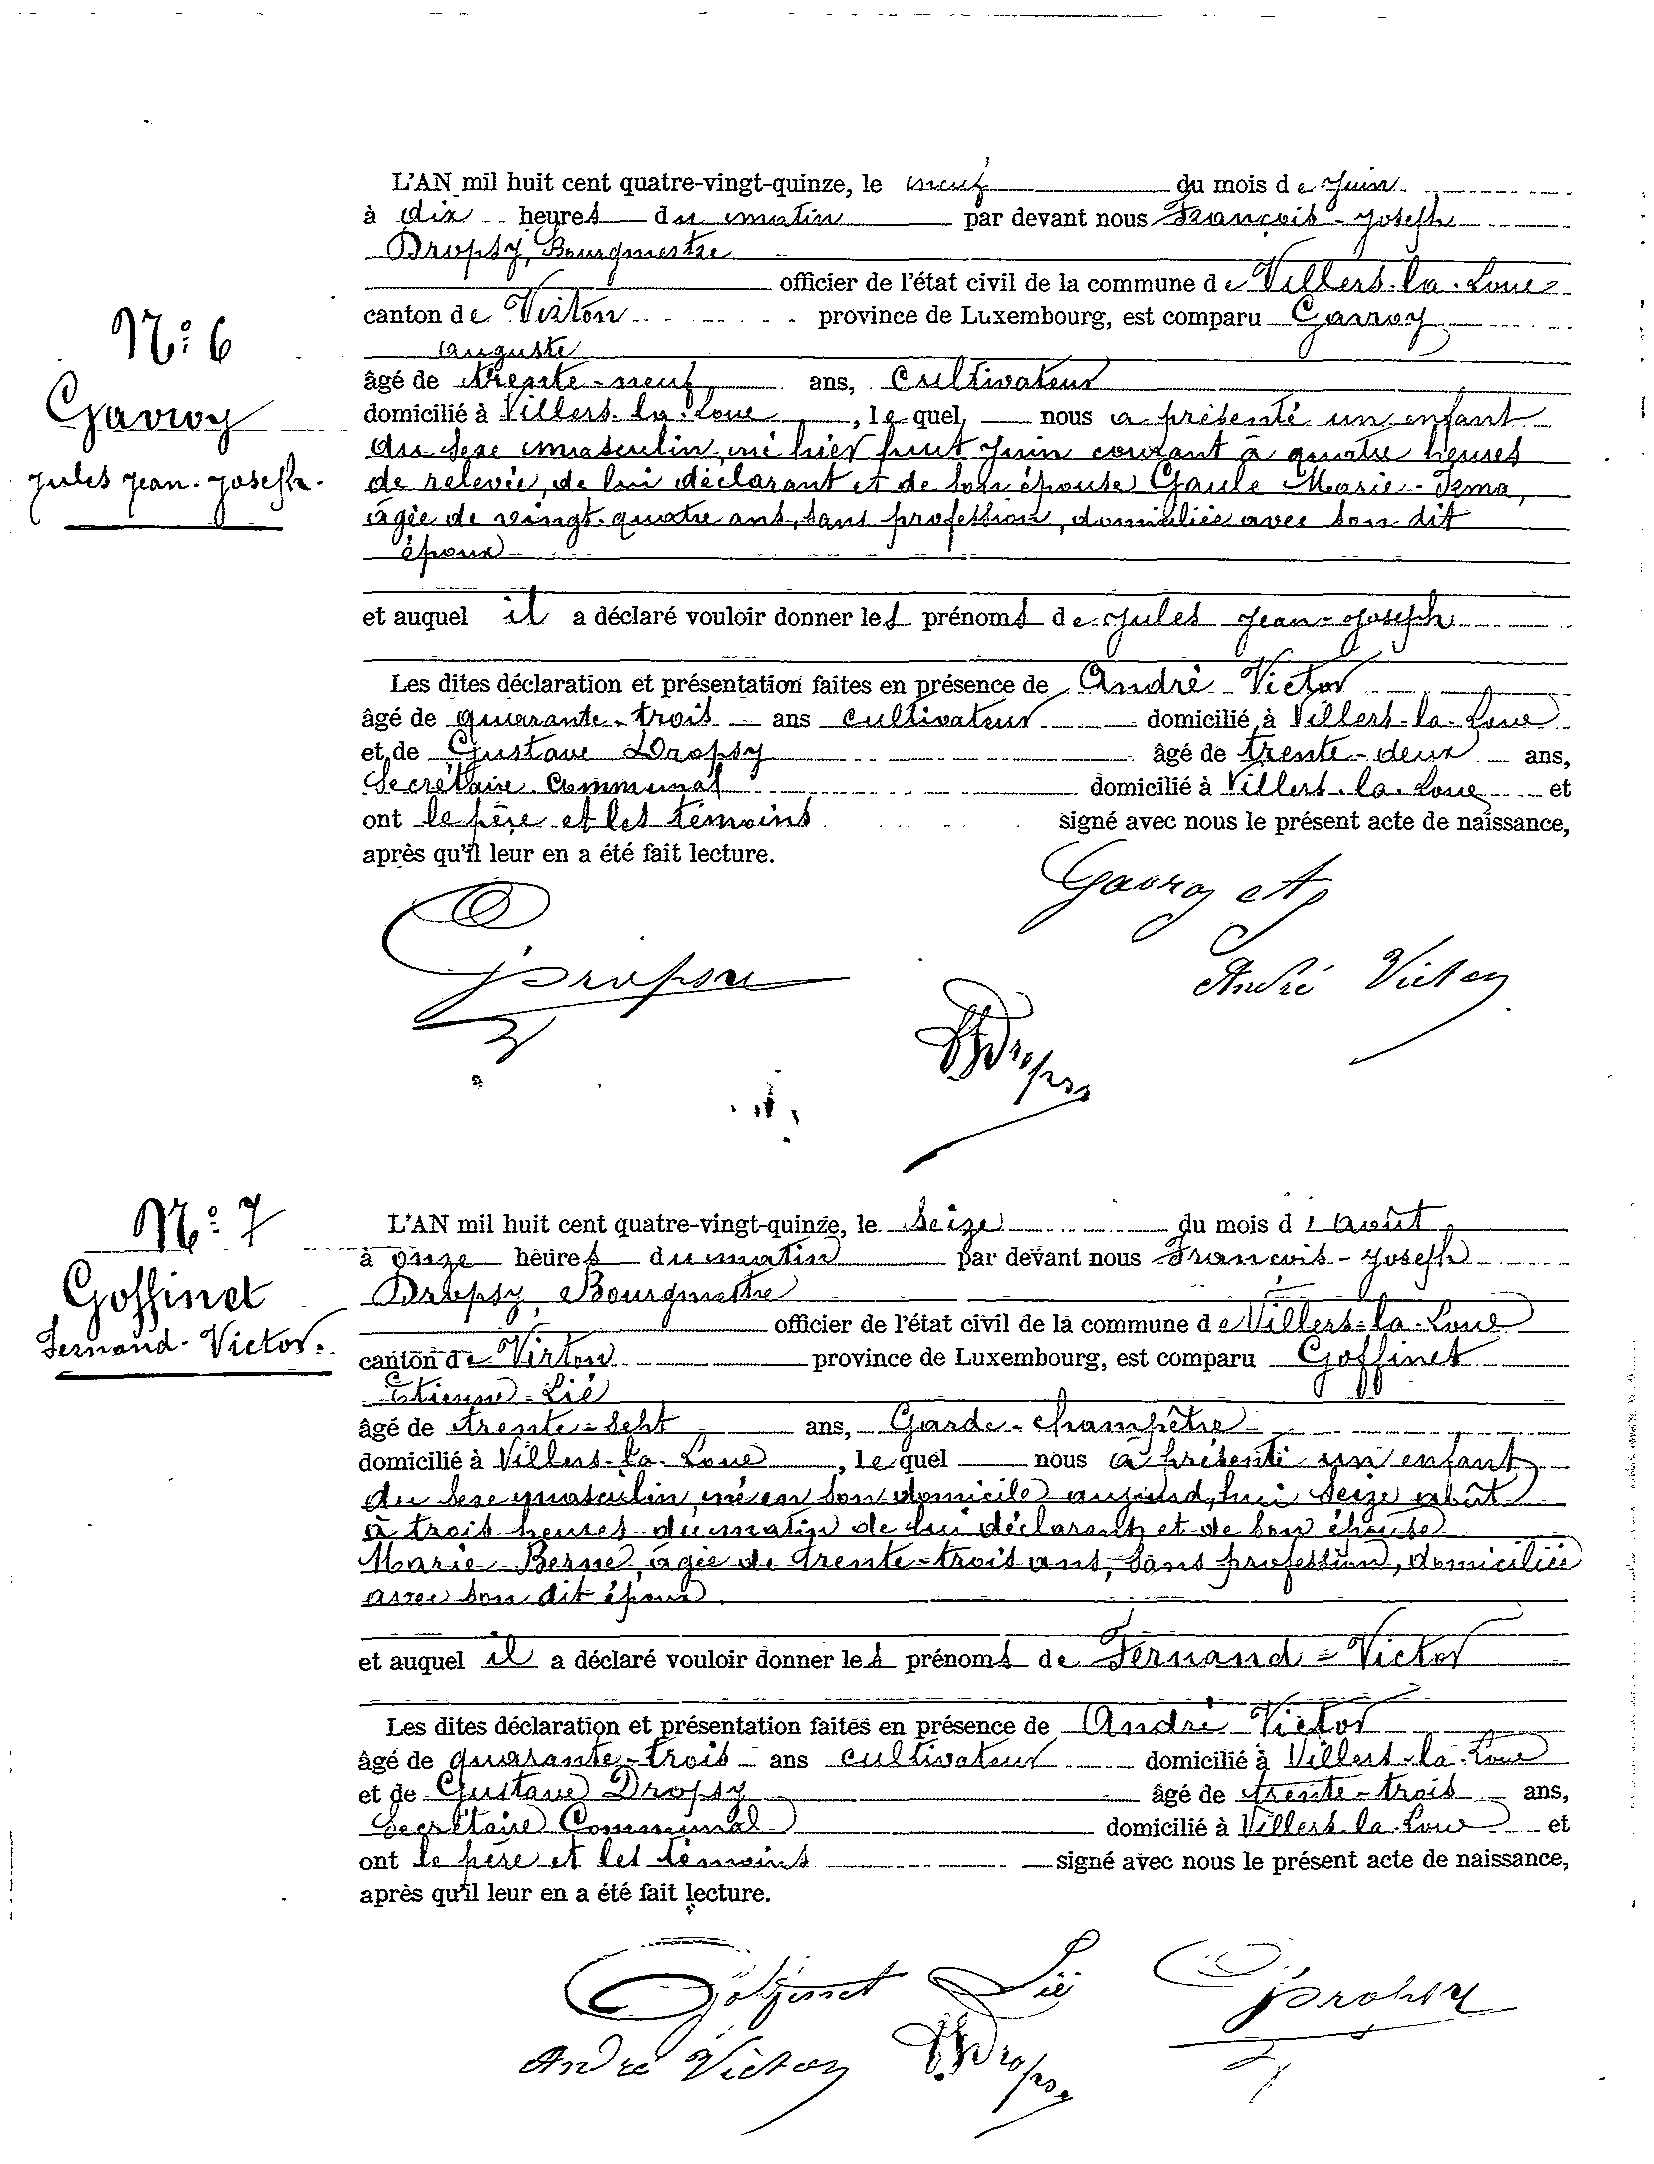 L'AN mil huit cent quatre-vingt-quinze, le neuf du mois de Juin
à dix heures du matin par devant nous François-Joseph
Dropsy, Bourgmestre
officier de l'état civil de la commune de Villers-la-Loue
canton de Virton province de Luxembourg, est comparu Gavroy
Auguste
âgé de trente-neuf ans, Cultivateur
domicilié à Villers-la-Loue, lequel nous a présenté un enfant
du sexe masculin, né hier huit Juin courant à quatre heures
de relevée, de lui déclarant et de son épouse Gaule Marie-Irma,
âgée de vingt-quatre ans, sans profession, domiciliée avec son dit
époux
et auquel il a déclaré vouloir donner les prénoms de Jules Jean-Joseph
Les dites déclaration et présentation faites en présence de André Victor
âgé de quarante-trois ans cultivateur domicilié à Villers-la-Loue
et de Gustave Dropsy âgé de trente-deux ans,
Secrétaire Communal domicilié à Villers-la-Loue et
ont le père et les témoins signé avec nous le présent acte de naissance,
après qu'il leur en a été fait lecture.
N° 6
Gavroy
Jules Jean-Joseph.
Gavroy A
GDropsy
André Victor
FJDropsy
N° 7
Goffinet
Fernand-Victor.
L'AN mil huit cent quatre-vingt-quinze, le Seize du mois d'Août
à onze heures du matin par devant nous François-Joseph
Dropsy, Bourgmestre
officier de l'état civil de la commune de Villers-la-Loue
canton de Virton province de Luxembourg, est comparu Goffinet
Etienne-Lié
âgé de trente-sept ans, Garde-champêtre
domicilié à Villers-la-Loue, lequel nous a présenté un enfant
du sexe masculin, né en son domicile aujourd'hui Seize août
à trois heures du matin de lui déclarant et de son épouse
Marie Besne, âgée de trente-trois ans, sans profession, domiciliée
avec son dit époux.
et auquel il a déclaré vouloir donner les prénoms de Fernand-Victor
Les dites déclaration et présentation faites en présence de André Victor
âgé de quarante-trois ans cultivateur domicilié à Villers-la-Loue
et de Gustave Dropsy âgé de trente-trois ans,
Secrétaire Communal domicilié à Villers-la-Loue et
ont le père et les témoins signé avec nous le présent acte de naissance,
après qu'il leur en a été fait lecture.
Goffinet Lié
GDropsy
André Victor
FJDropsy